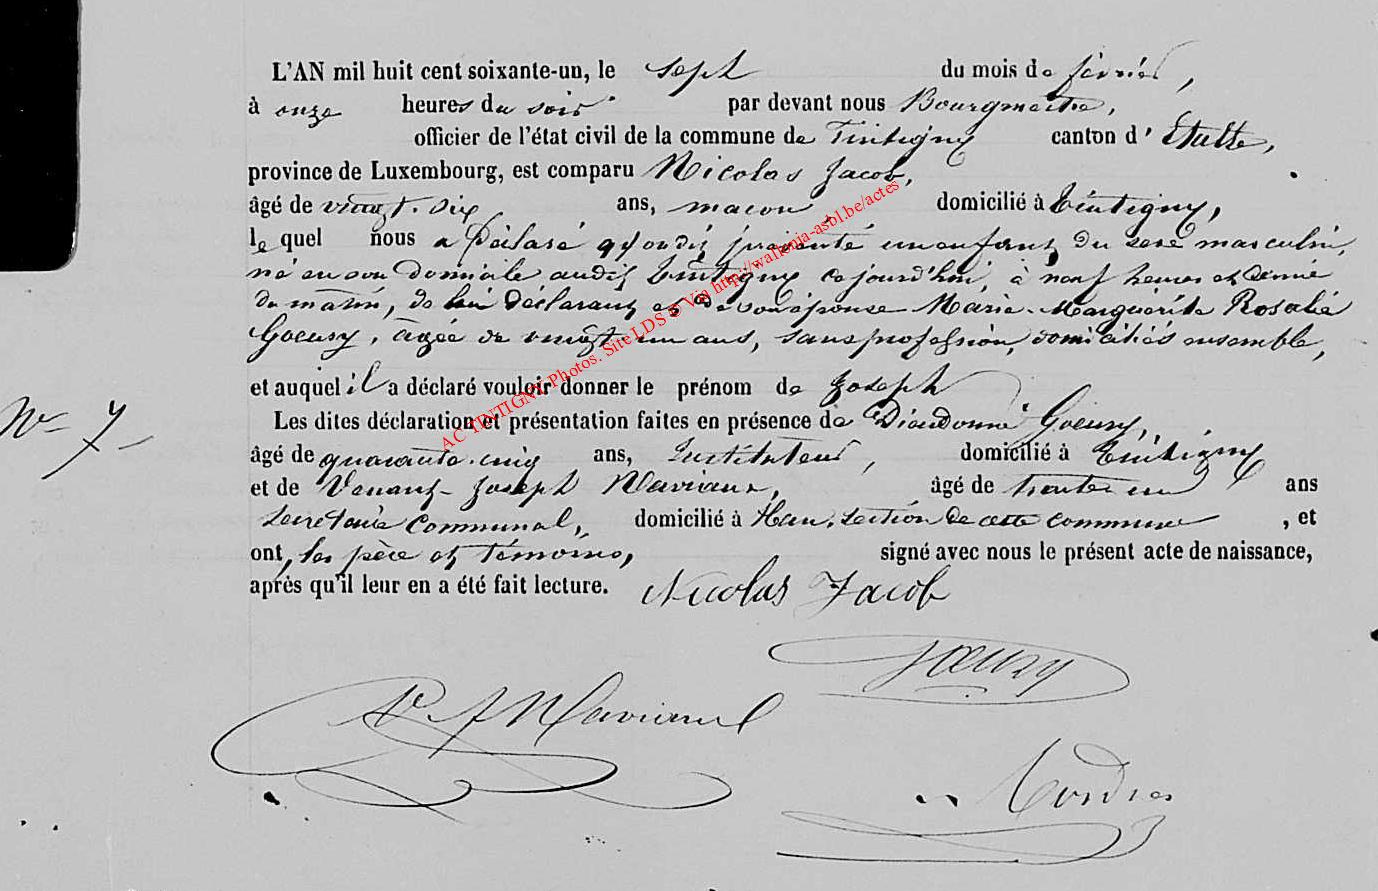 L'AN mil huit cent soixante-un, le sept du mois de février,
à onze heures du soir par devant nous Bourgmestre,
officier de l'état civil de la commune de Tintigny canton d' Etalle,
province de Luxembourg, est comparu Nicolas Jacob,
âgé de vingt-six ans, maçon, domicilié à Tintigny,
le quel nous a déclaré présenté un enfant du sexe masculin,
né en son domicile audit Tintigny cejourd'hui, à neuf heures et demie
du matin, de lui déclarant et de son épouse Marie-Marguérite Rosalie
Goeury, âgée de vingt-un ans, sans profession, domiciliés ensemble,
et auquel il a déclaré vouloir donner le prénom de Joseph
N° 7
Les dites déclaration et présentation faites en présence de Dieudonné Goeury,
âgé de quarante-cinq ans, Instituteur, domicilié à Tintigny
et de Venant-Joseph Maviaux, âgé de trente un ans
secrétaire communal, domicilié à Han, section de cette commune, et
ont, les père et témoins, signé avec nous le présent acte de naissance,
après qu'il leur en a été fait lecture. Nicolas Jacob
Goeury
V. J. Maviaux
AC TINTIGNY Photos. Site LDS © Via http://wallonia-asbl.be/actes